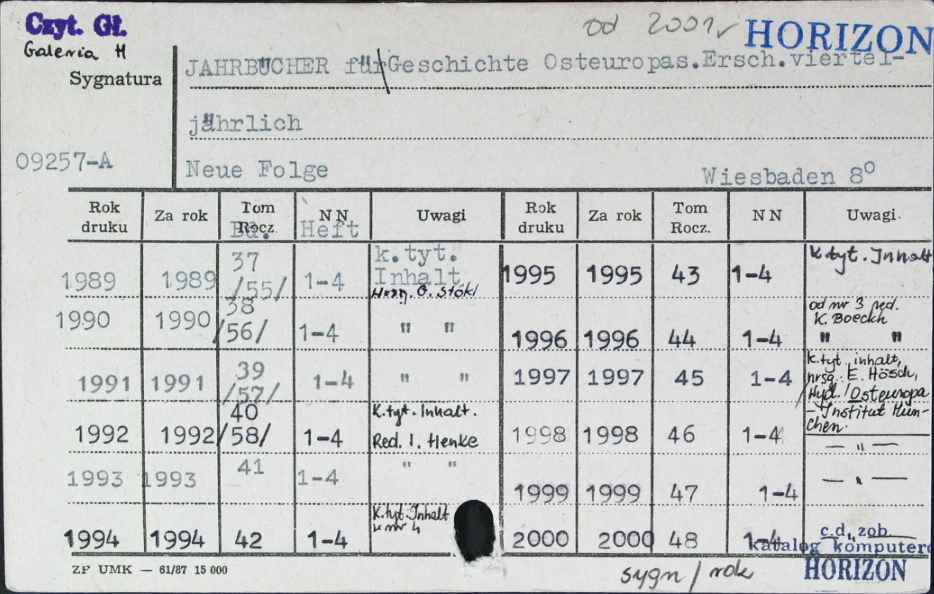 Czyt. Gł.
Galeria H
od 2001r
HORIZON
Sygnatura
JAHRBÜCHER für Geschichte Osteuropas.Ersch.viertel-
jährlich
09257-A
Neue Folge
Wiesbaden 8°
Rok druku Za rok Tom Rocz. N N Uwagi Rok druku Za rok Tom Rocz. N N Uwagi
Bd. Heft
1989 1989 37 /55/ 1-4 k.tyt. Inhalt Hrsg. G. Stökl
1995 1995 43 1-4 K.tyt. Inhalt
1990 1990 38 /56/ 1-4 " "
1996 1996 44 1-4 od nr 3 red. K. Boeckh " "
1991 1991 39 /57/ 1-4 " "
1997 1997 45 1-4 K.tyt. inhalt, hrsg. E. Hösch, Osteuropa - Institut Mün- chen.
1992 1992 40 /58/ 1-4 K.tyt. Inhalt. Red. I. Henke
1998 1998 46 1-4 — " —
1993 1993 41 1-4 " "
1999 1999 47 1-4 — " —
1994 1994 42 1-4 K.tyt. Inhalt w nr 4
2000 2000 48 1-4 c.d. zob.
katalog komputero
HORIZON
ZP UMK — 61/87 15 000
sygn / rok